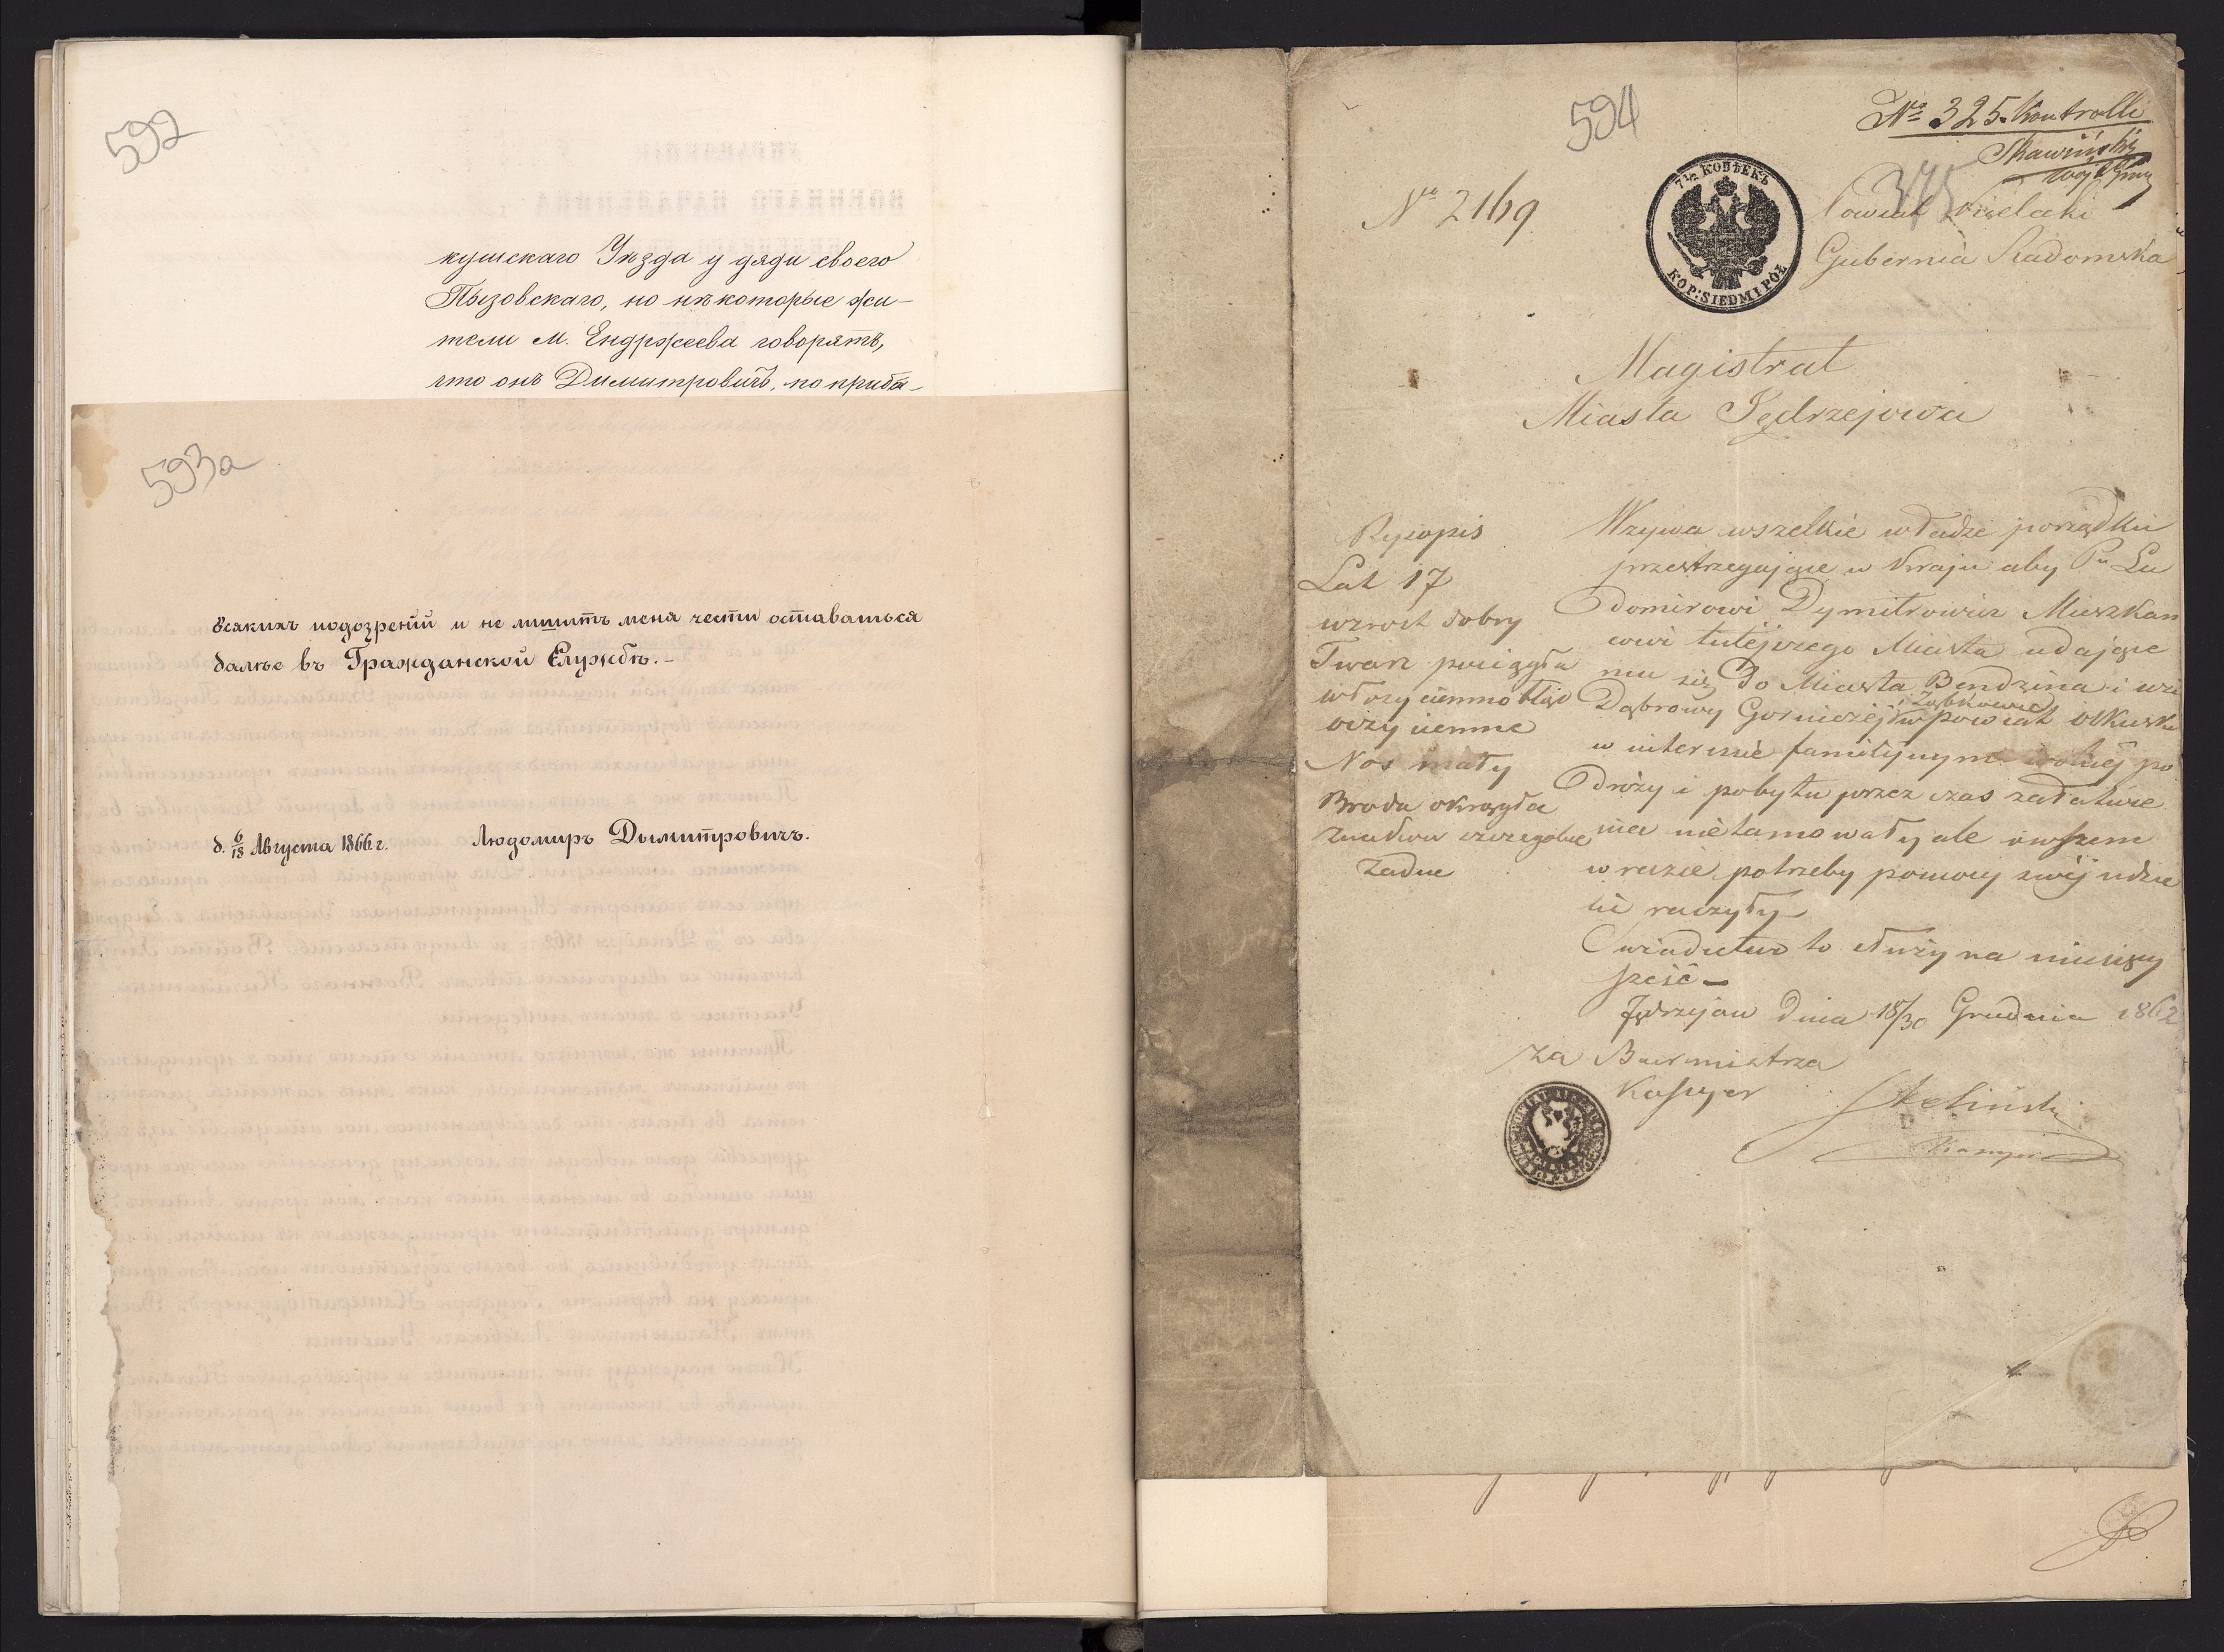 592
кушскаго Уѣзда у дяди своего
Пызовскаго, но нѣкоторые жи-
тели м. Енджеева говорятъ,
что онъ Димитровичъ, по приба-
593a
всякихъ подозреній и не лишитъ меня чести оставаться
далѣе въ Гражданской Службѣ.-
д. 6/18 Августа 1866 г. Людомиръ Дымитровичъ.
594
No 325. Kontrolli
Skawiński
Wójt Gminy
375
No 2169
7½ КОПѢЕКЪ
KOP: SIEDM I PÓŁ
Powiat Kielecki
Gubernia Radomska
Magistrat
Miasta Jędrzejowa
Rysopis
Lat 17
wzrost dobry
Twarz pociągła
włosy ciemno bląd
oczy ciemne
Nos mały
Broda okrągła
Znaków szczególne
żadne
Wzywa wszelkie władze porządku
przestrzegające w Kraju aby Pu Lu
domirowi Dymitrowicz Mieszkan
cowi tutéjszego Miasta udające
mu się do Miasta Bendzina i wsi
i Ząbkowic
Dąbrowy Gorniczéj w powiat Olkuski
w interesie familijnym wolnéj po
dróży i pobytu przez czas
nie tamowały ale owszem
w razie potrzeby pomocy swéj udzie
lić raczyły
Swiadectwo to służy na miesięcy
sześć -
Jędrzejów dnia 18/30 Grudnia 1862
za Burmistrza
Kassyer